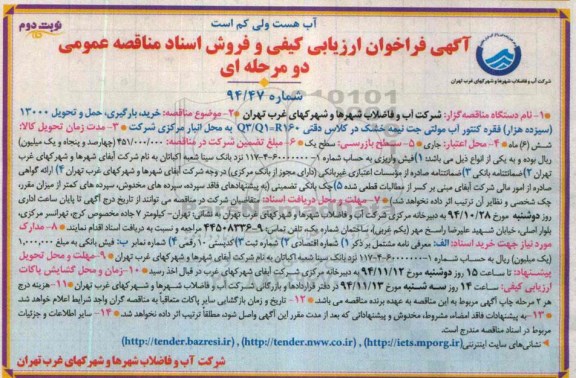 آب هست ولی کم است
نوبت دوم
آگهی فراخوان ارزیابی کیفی و فروش اسناد مناقصه عمومی
دو مرحله ای
شرکت آب و فاضلاب شهرها و شهرکهای غرب تهران
شماره ۹۴/۴۷
۱- نام دستگاه مناقصه گزار: شرکت آب و فاضلاب شهرها و شهرکهای غرب تهران ۲- موضوع مناقصه: خرید، بارگیری، حمل و تحویل ۱۳۰۰۰
(سیزده هزار) فقره کنتور آب مولتی جت نیمه خشک در کلاس دقتی Q3/Q1=R۱۶۰ به محل انبار مرکزی شرکت ۳- مدت زمان تحویل کالا:
شش (۶) ماه ۴- محل اعتبار: جاری ۵- سطح بازرسی: سطح یک ۶- مبلغ تضمین شرکت در مناقصه: ۴۵۱/۰۰۰/۰۰۰ (چهارصد و پنجاه و یک میلیون)
ریال بوده و به یکی از انواع ذیل می باشد: ۱) فیش واریزی به حساب شماره نزد بانک سینا شعبه اکباتان به نام شرکت آبفای شهرها و شهرکهای غرب
تهران ۲) ضمانتنامه بانکی ۳) ضمانتنامه صادره از مؤسسات اعتباری غیربانکی (دارای مجوز از بانک مرکزی) در وجه شرکت آبفای شهرها و شهرکهای غرب تهران ۴) ارائه گواهی
صادره از امور مالی شرکت آبفای مبنی بر کسر از مطالبات قطعی شده ۵) چک بانکی تضمینی (به پیشنهادهای فاقد سپرده، سپرده های مخدوش، سپرده های کمتر از میزان مقرر،
چک شخصی و نظایر آن ترتیب اثر داده نخواهد شد.) ۷- مهلت و محل دریافت اسناد: متقاضیان شرکت در مناقصه می توانند از تاریخ درج آگهی تا پایان ساعت اداری
روز دوشنبه مورخ ۹۴/۱۰/۲۸ به دبیرخانه مرکزی شرکت آب و فاضلاب شهرها و شهرکهای غرب تهران به نشانی تهران- کیلومتر ۷ جاده مخصوص کرج، تهرانسر مرکزی،
بلوار اصلی، خیابان شهید علیرضا راسخ مهر (یکم غربی)، ساختمان شماره یک، تلفن تماس: ۹-۴۴۵۰۸۳۳۶ مراجعه و نسبت به دریافت اسناد اقدام نمایند. ۸- مدارک
مورد نیاز جهت خرید اسناد: الف: معرفی نامه مشتمل بر ذکر ۱) شماره اقتصادی ۲) شماره ثبت ۳) کدپستی ۱۰ رقمی ۴) شماره نمابر ب: فیش بانکی به مبلغ ۱,۰۰۰,۰۰۰
(یک میلیون) ریال به حساب شماره نزد بانک سینا شعبه اکباتان به نام شرکت آبفای شهرها و شهرکهای غرب تهران ۹- مهلت و محل تحویل
پیشنهادها: تا ساعت ۱۵ روز دوشنبه مورخ ۹۴/۱۱/۱۲ به دبیرخانه مرکزی شرکت آبفای شهرها و شهرکهای غرب در قبال اخذ رسید ۱۰- زمان و محل گشایش پاکات
ارزیابی کیفی: ساعت ۱۴ روز سه شنبه مورخ ۹۴/۱۱/۱۳ در دفتر قراردادها و بازرگانی شرکت آب و فاضلاب شهرها و شهرکهای غرب تهران ۱۱- هزینه درج
هر ۲ مرحله چاپ آگهی مربوط به این مناقصه به عهده برنده مناقصه می باشد ۱۲- تاریخ و زمان بازگشایی سایر پاکات متعاقباً به مناقصه گران واجد شرایط اعلام خواهد شد.
۱۳- به پیشنهادات فاقد امضاء، مشروط، مخدوش و پیشنهاداتی که بعد از مدت مقرر این آگهی واصل شود، مطلقاً ترتیب اثر داده نخواهد شد. ۱۴- سایر اطلاعات و جزئیات
مربوط در اسناد مناقصه مندرج است.
نشانی های سایت اینترنتی (http://iets.mporg.ir) , (http://tender.nww.co.ir) , (http://tender.bazresi.ir)
شرکت آب و فاضلاب شهرها و شهرکهای غرب تهران